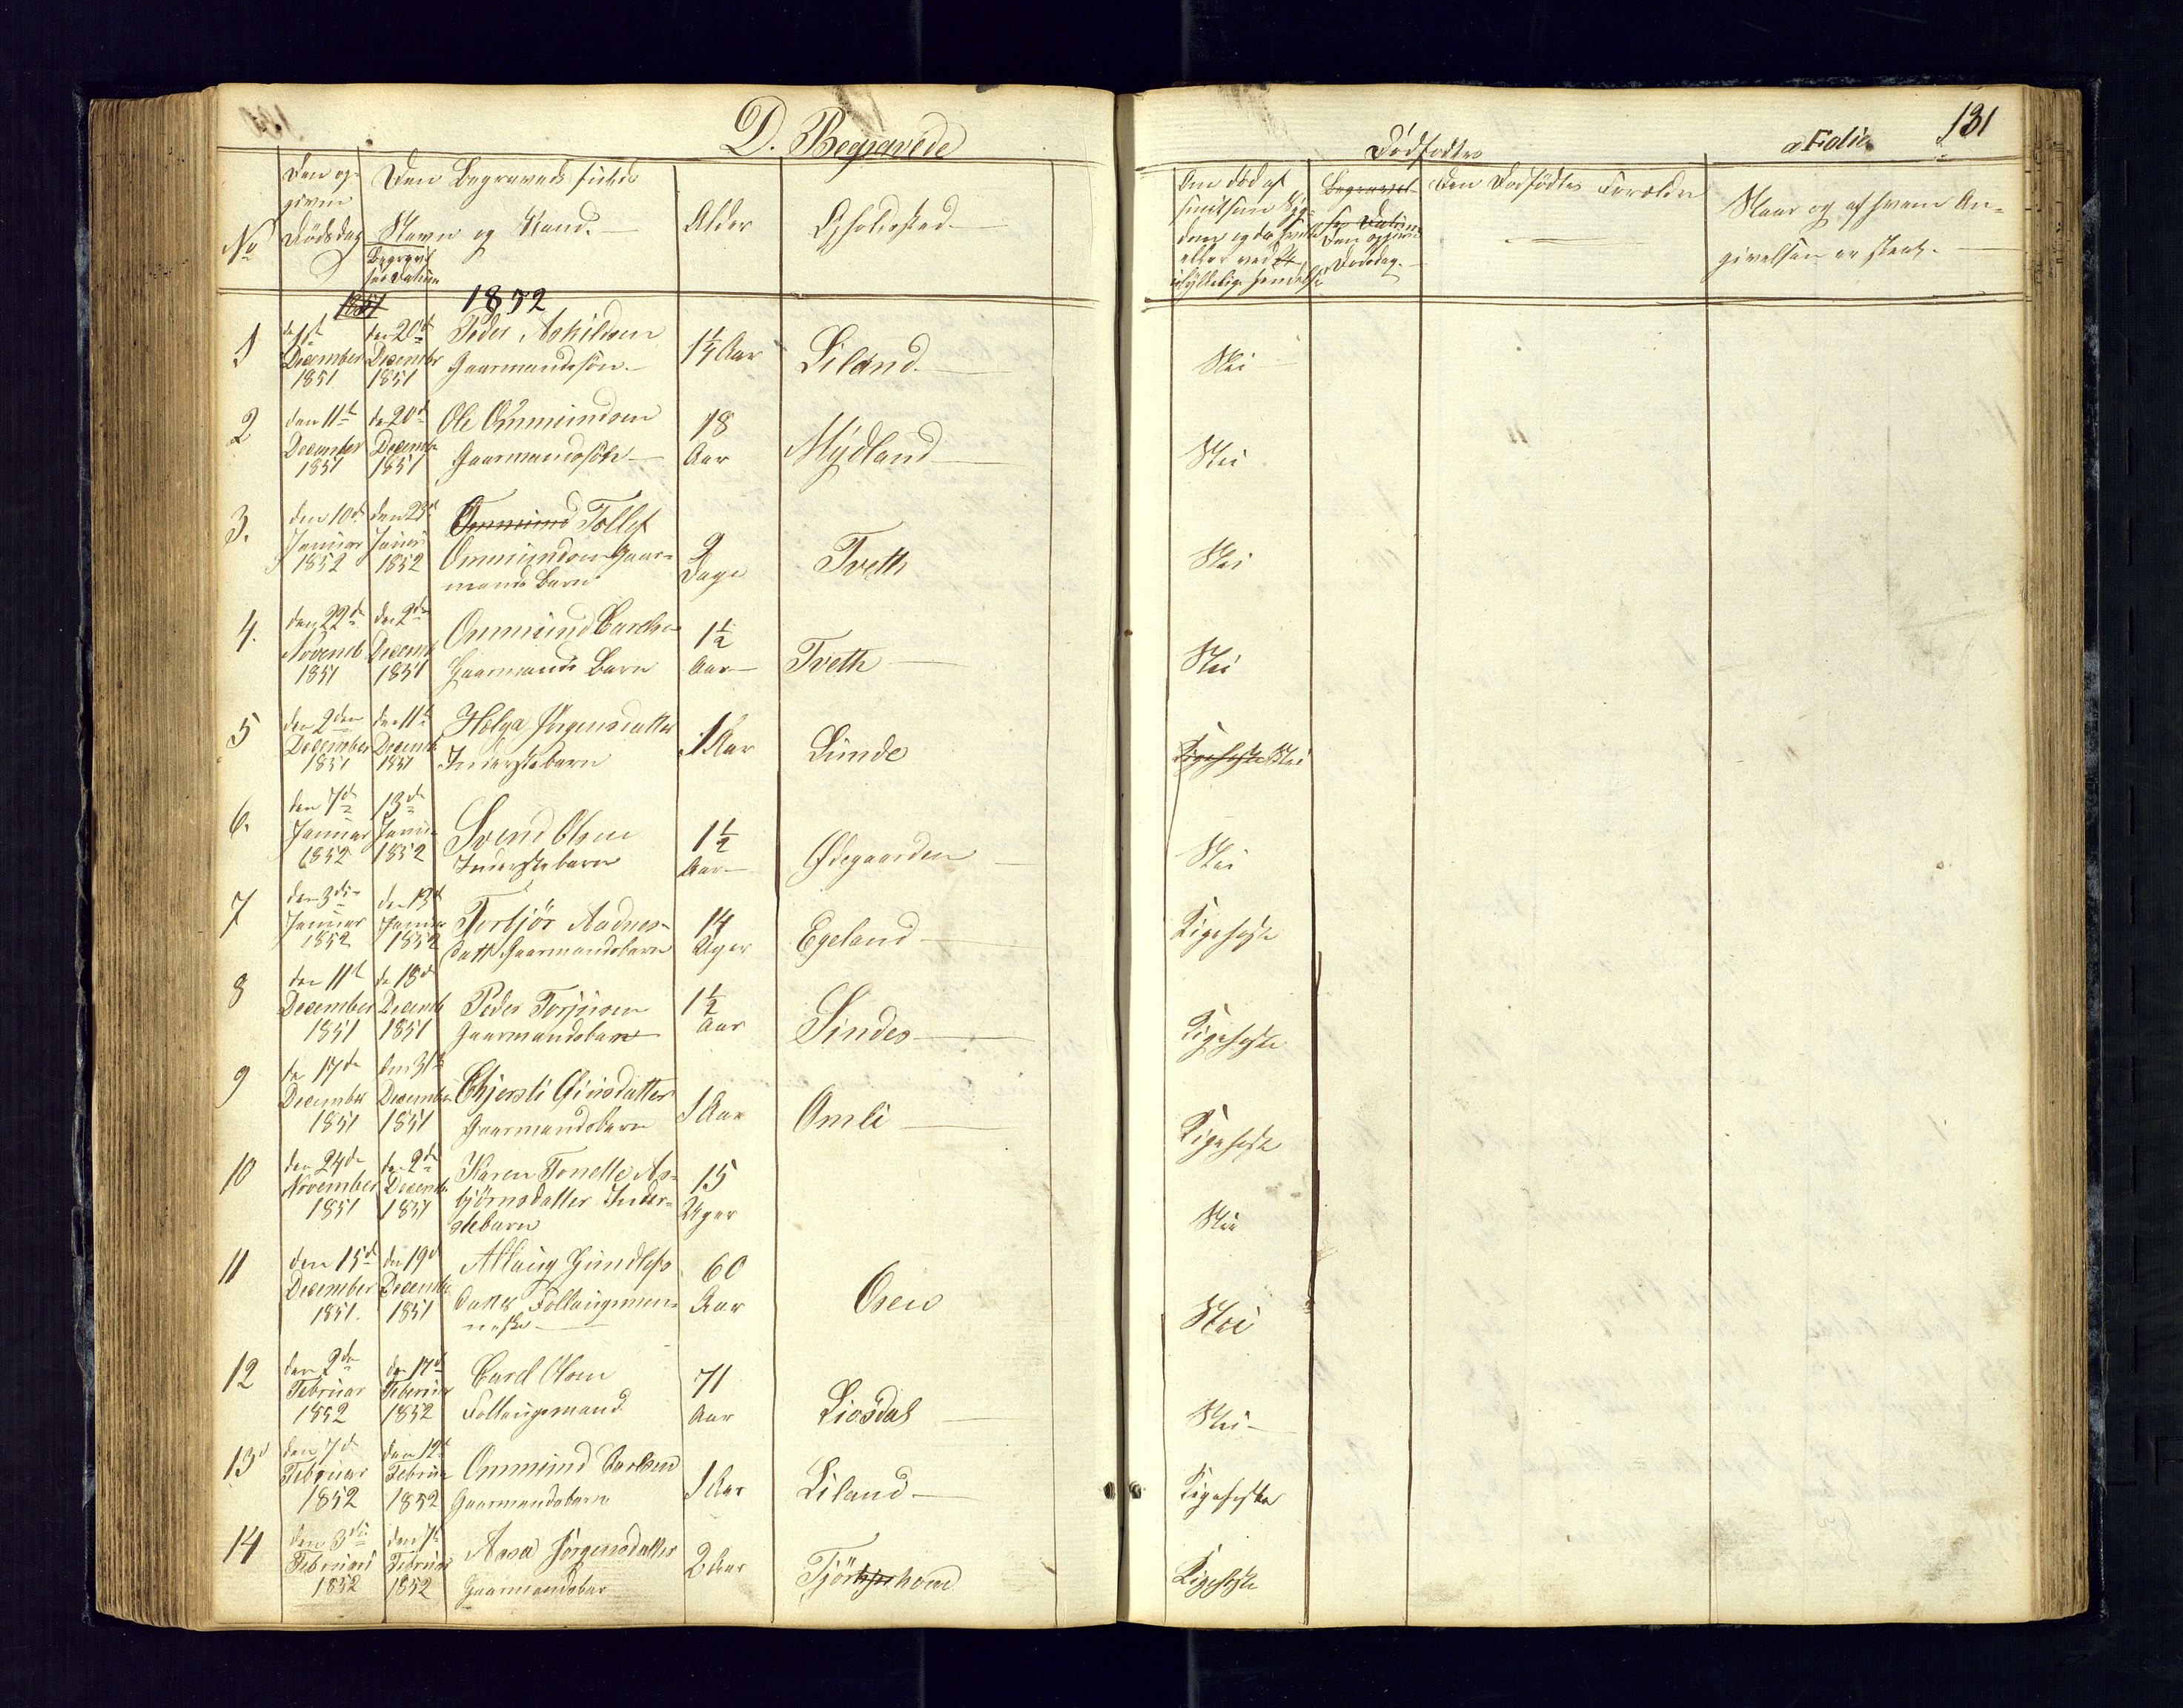 D. Begravede
Dødfødtes
Folio 131
No
Den opgivne Dødsdag
Begravelses Datum
Den Begravedes fulde Navn og Stand.
Alder
Opholdssted
Den opgivne Dødsdag.
Den Dødfødtes Forældre
Naar og af hvem Angivelsen er skeet.
1851 1852
1 den 1st December 1851 den 20de December 1851 Peder Askildsen Gaarmandssøn 1¼ Aar Liland Nei
2 den 11te December 1851 de 20de Decembr 1851 Ole Ommundsen Gaarmandssøn 18 Aar Mydland Nei
3. den 10de Januar 1852 den 23de Januar 1852 Ommund Tollef Ommundsen Gaarmands Barn 9 Dage Tveth Nei
4. den 22de Novemb 1851 den 2den Decemb 1851 Ommund Carlsen Gaarmands Barn 1½ Aar Tveth Nei
5 den 2den December 1851 den 11te Decemb 1851 Helga Jørgensdatter Inderstebarn 1 Aar Lunde Kigehoste Nei
6. den 7de Januar 1852 13de Januar 1852 Svend Olsen Inderstebarn 1½ Aar Ødegaarden Nei
7 den 3die Januar 1852 den 13de Januar 1852 Torbjør Aadnesdatt Gaarmandsbarn 14 Uger Egeland Kigehoste
8 den 11te December 1851 de 18de Decemb 1851 Peder Torjusen Gaarmandsbarn 1½ Aar Sindes Kigehoste
9 den 17de December 1851 den 31te December 1851 Chjersti Eivsdatter Gaarmandsbarn 1 Aar Omli Kigehoste
10 den 24de November 1851 den 2den Decemb 1851 Karen Tonette Asbjörnsdatter Inderstebarn 15 Uger Nei
11 den 15de December 1851. den 19de Decemb 1851 Allaug Gundlefsdatter Follaugsmenneske 60 Aar Osen Nei
12 den 2den Februar 1852 den 17de Februar 1852 Carl Olsen Follaugsmand 71 Aar Liosdal Nei
13 den 7de Februar 1852 den 12te Februar 1852 Ommund Carlsen Gaarmandsbarn 1 Aar Liland Kigehoste
14 den 3die Februari 1852 den 7de Februar 1852 Aasa Jørgensdatter Gaarmandsbar 2 Aar Tjörnhom Kigehoste